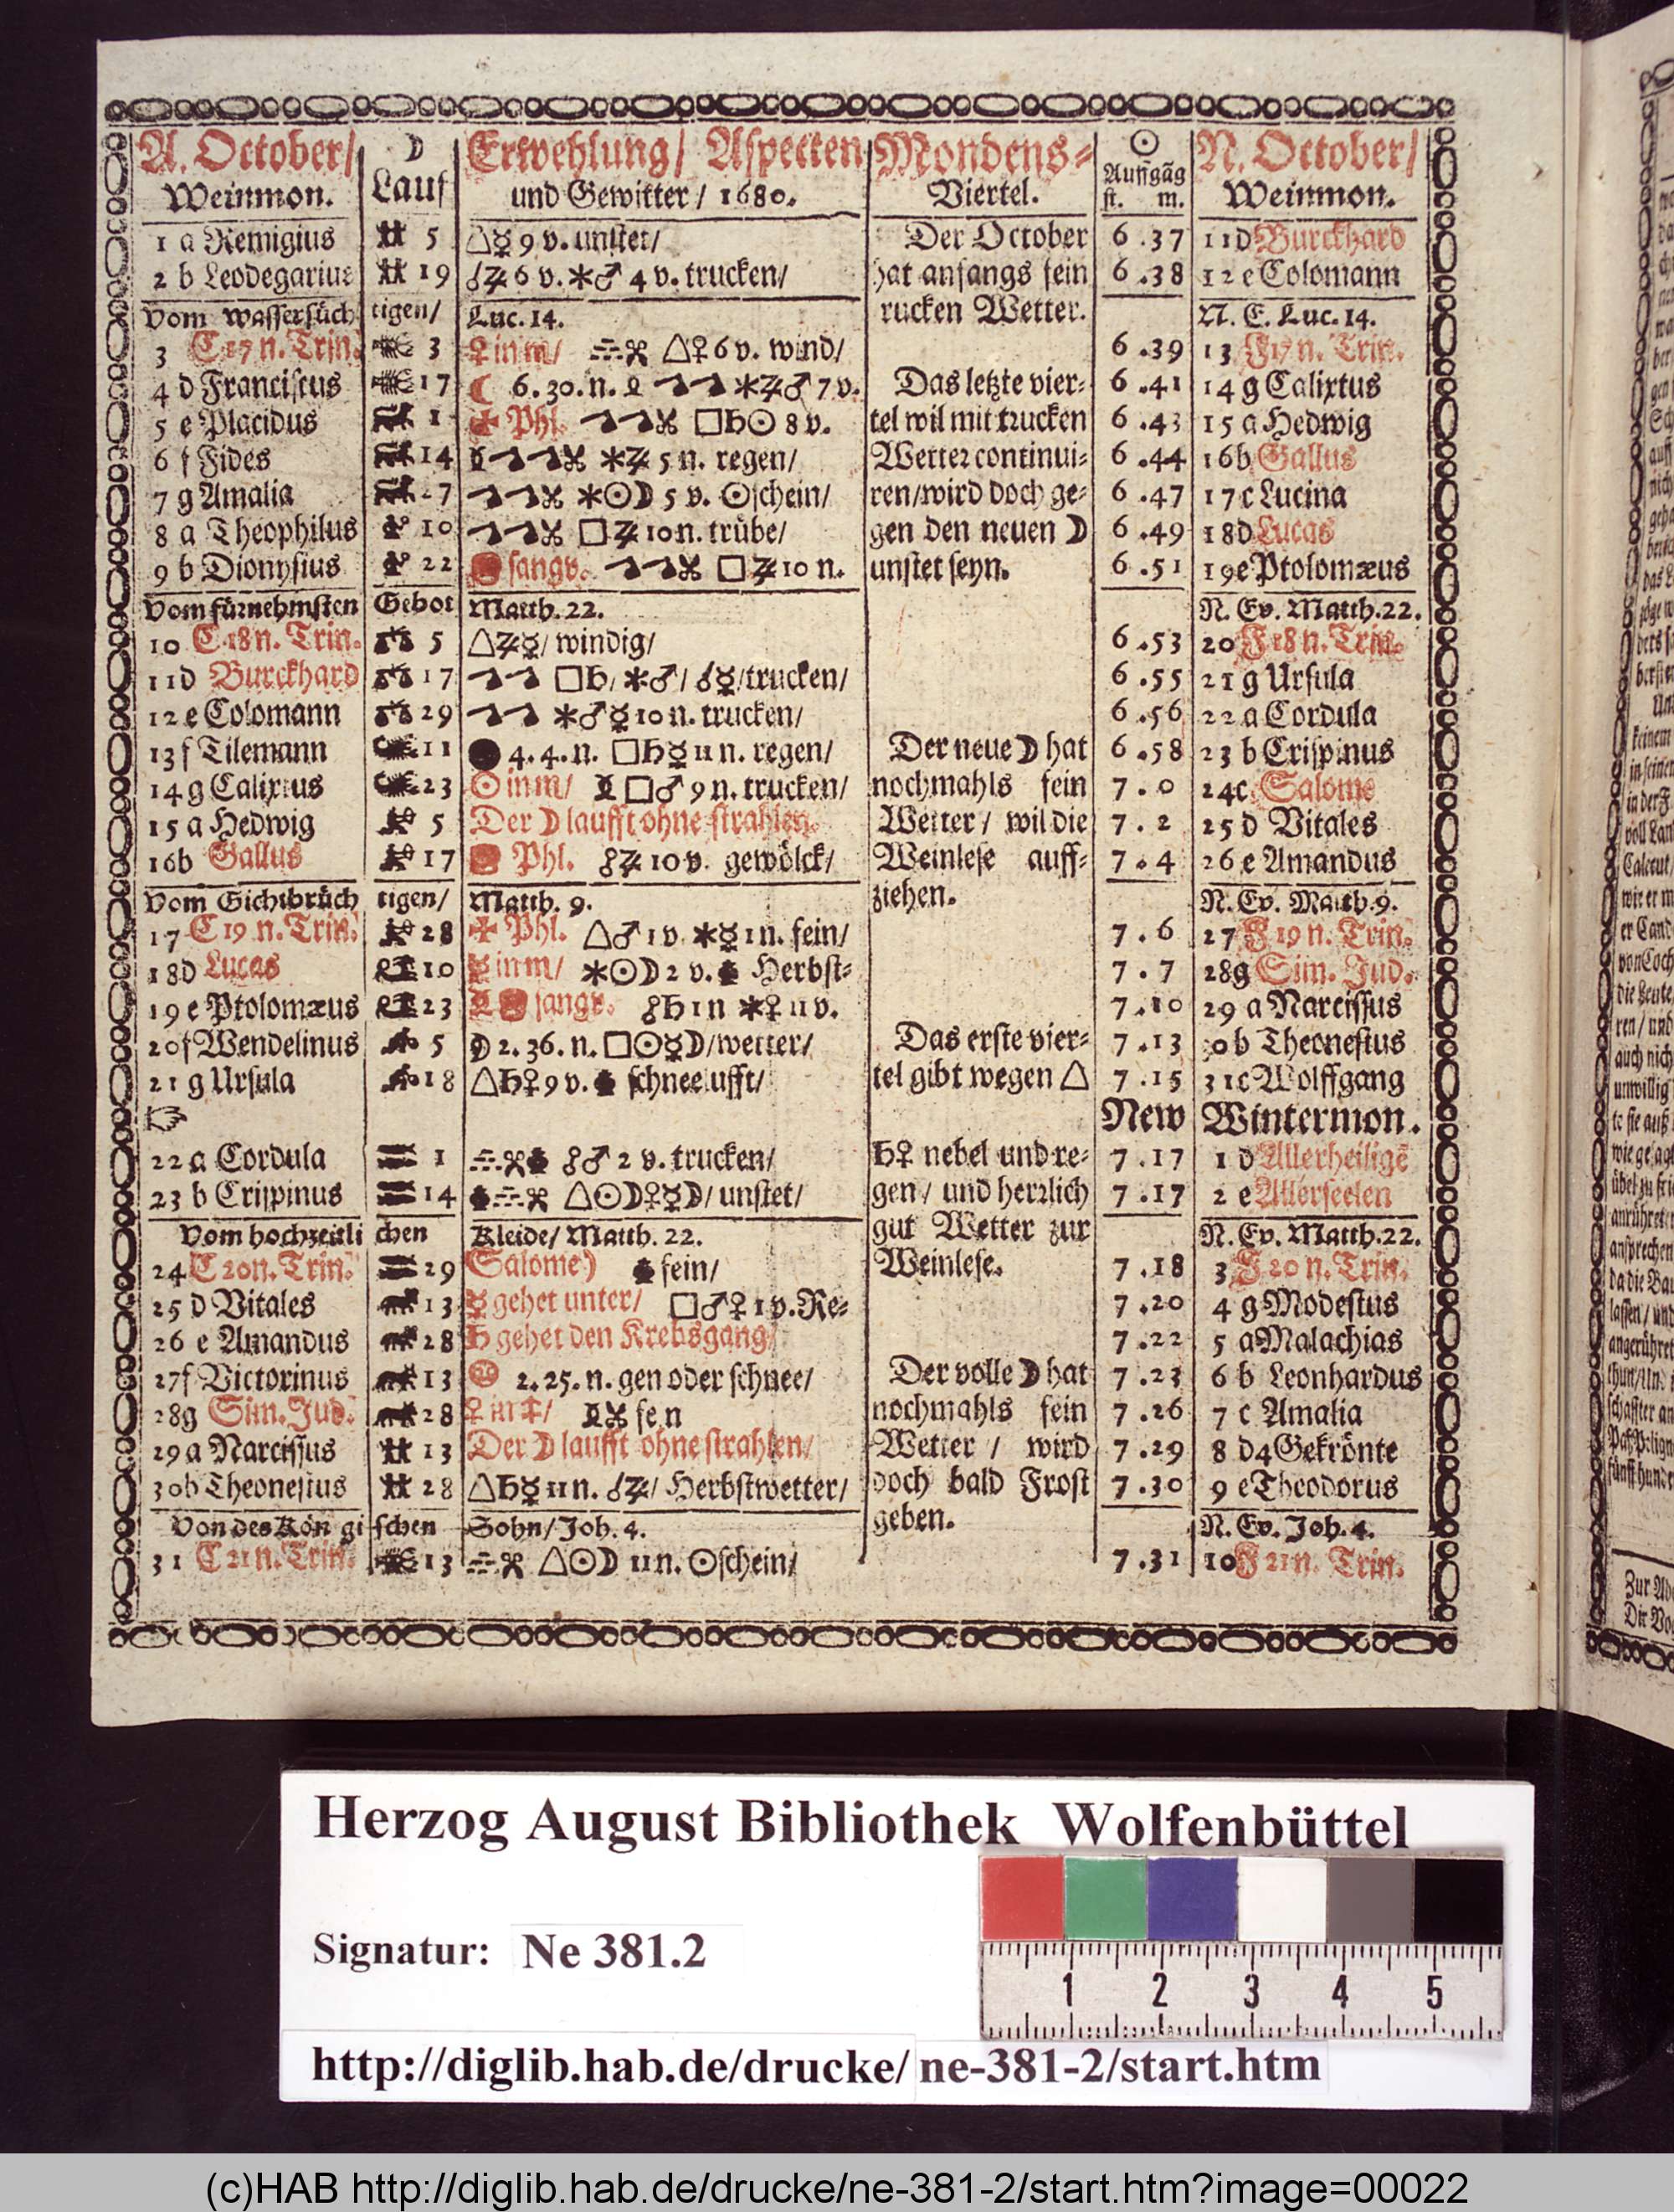 A. October/ ☽ Erwehlung/ Aspecten Mondens= ☉ N. October/
Weinmon. Lauf und Gewitter / 1680. Viertel. Auffgãg Weinmon.
st. m.
1 a Remigius 5 △☿ 9 v. unstet/ Der October 6 .37 11 D Burckhard
2 b Leodegarius 19 ☌♃ 6 v. ⚹♂ 4 v. trucken/ hat anfangs fein 6 .38 12 e Colomann
Vom wassersüch tigen/ Luc. 14. rucken Wetter. N. E. Luc. 14.
3 C 17 n. Trin. 3 ♀ in ♏/ △♀ 6 v. wind/ 6 .39 13 F 17 n. Trin.
4 d Franciscus 17 ☾ 6. 30. n. ⚹♃♂ 7 v. Das letzte vier= 6 .41 14 g Calixtus
5 e Placidus 1 ✠ Phl. □♄☉ 8 v. tel wil mit trucken 6 .43 15 a Hedwig
6 f Fides 14 ⚹♃ 5 n. regen/ Wetter continui= 6 .44 16 b Gallus
7 g Amalia 27 ⚹☉☽ 5 v. ☉schein/ ren/wird doch ge= 6 .47 17 c Lucina
8 a Theophilus 10 □♃ 10 n. trübe/ gen den neuen ☽ 6 .49 18 D Lucas
9 b Dionysius 22 sangv. □♃ 10 n. unstet seyn. 6 .51 19 e Ptolomæus
Vom fürnehmsten Gebot Matth. 22. N. Ev. Matth. 22.
10 C 18 n. Trin. 5 △♃☿/ windig/ 6 .53 20 F 18 n. Trin.
11 D Burckhard 17 □♄, ⚹♂/ ☌☿/trucken/ 6 .55 21 g Ursula
12 e Colomann 29 ⚹♂☿ 10 n. trucken/ 6 .56 22 a Cordula
13 f Tilemann 11 ● 4. 4. n. □♄☿ 11 n. regen/ Der neue ☽ hat 6 .58 23 b Crispinus
14 g Calixtus 23 ☉ in ♏/ □♂ 9 n. trucken/ nochmahls fein 7 . 0 24 c Salome
15 a Hedwig 5 Der ☽ laufft ohne strahlen. Wetter / wil die 7 . 2 25 D Vitales
16 b Gallus 17 Phl. ☍♃ 10 v. gewölck/ Weinlese auff= 7 . 4 26 e Amandus
Vom Gichtbrüch tigen/ Matth. 9. ziehen. N. Ev. Matth. 9.
17 C 19 n. Trin. 28 ✠ Phl. △♂ 1 v. ⚹☿ 1 n. fein/ 7 . 6 27 F 19 n. Trin.
18 D Lucas 10 ☿ in ♏/ ⚹☉☽ 2 v. Herbst= 7 . 7 28 g Sim. Jud.
19 e Ptolomæus 23 sangv. ☍♄ 1 n ⚹♀ 11 v. 7 .10 29 a Narcissus
20 f Wendelinus 5 ☽ 2. 36. n. □☉☿☽/wetter/ Das erste vier= 7 .13 30 b Theonestus
21 g Ursula 18 △♄♀ 9 v. schneelufft/ tel gibt wegen △ 7 .15 31 c Wolffgang
☞ New Wintermon.
22 a Cordula 1 ☍♂ 2 v. trucken/ ♄♀ nebel und re= 7 .17 1 D Allerheiligẽ
23 b Crispinus 14 △☉☽♀☿☽/ unstet/ gen / und herrlich 7 .17 2 e Allerseelen
Vom hochzeitli chen Kleide/ Matth. 22. gut Wetter zur N. Ev. Matth. 22.
24 C 20 n. Trin. 29 Salome) fein/ Weinlese. 7 .18 3 F 20 n. Trin.
25 D Vitales 13 ☿ gehet unter/ □♂♀ 1 v. Re= 7 .20 4 g Modestus
26 e Amandus 28 ♄ gehet den Krebsgang/ 7 .22 5 a Malachias
27 f Victorinus 13 2. 25. n. gen oder schnee/ Der volle ☽ hat 7 .23 6 b Leonhardus
28 g Sim. Jud. 28 ♀ in ♐/ fein nochmahls fein 7 .26 7 c Amalia
29 a Narcissus 13 Der ☽ laufft ohne strahlen/ Wetter / wird 7 .29 8 D 4 Gekrönte
30 b Theonestus 28 △♄☿ 11 n. ☌♃/ Herbstwetter/ doch bald Frost 7 .30 9 e Theodorus
Von des Kön gi schen Sohn/ Joh. 4. geben. N. Ev. Joh. 4.
31 C 21 n. Trin. 13 △☉☽ 11 n. ☉schein/ 7 .31 10 F 21 n. Trin.
Herzog August Bibliothek Wolfenbüttel
Signatur: Ne 381.2
1 2 3 4 5
http://diglib.hab.de/drucke/ ne-381-2/start.htm
(c)HAB http://diglib.hab.de/drucke/ne-381-2/start.htm?image=00022